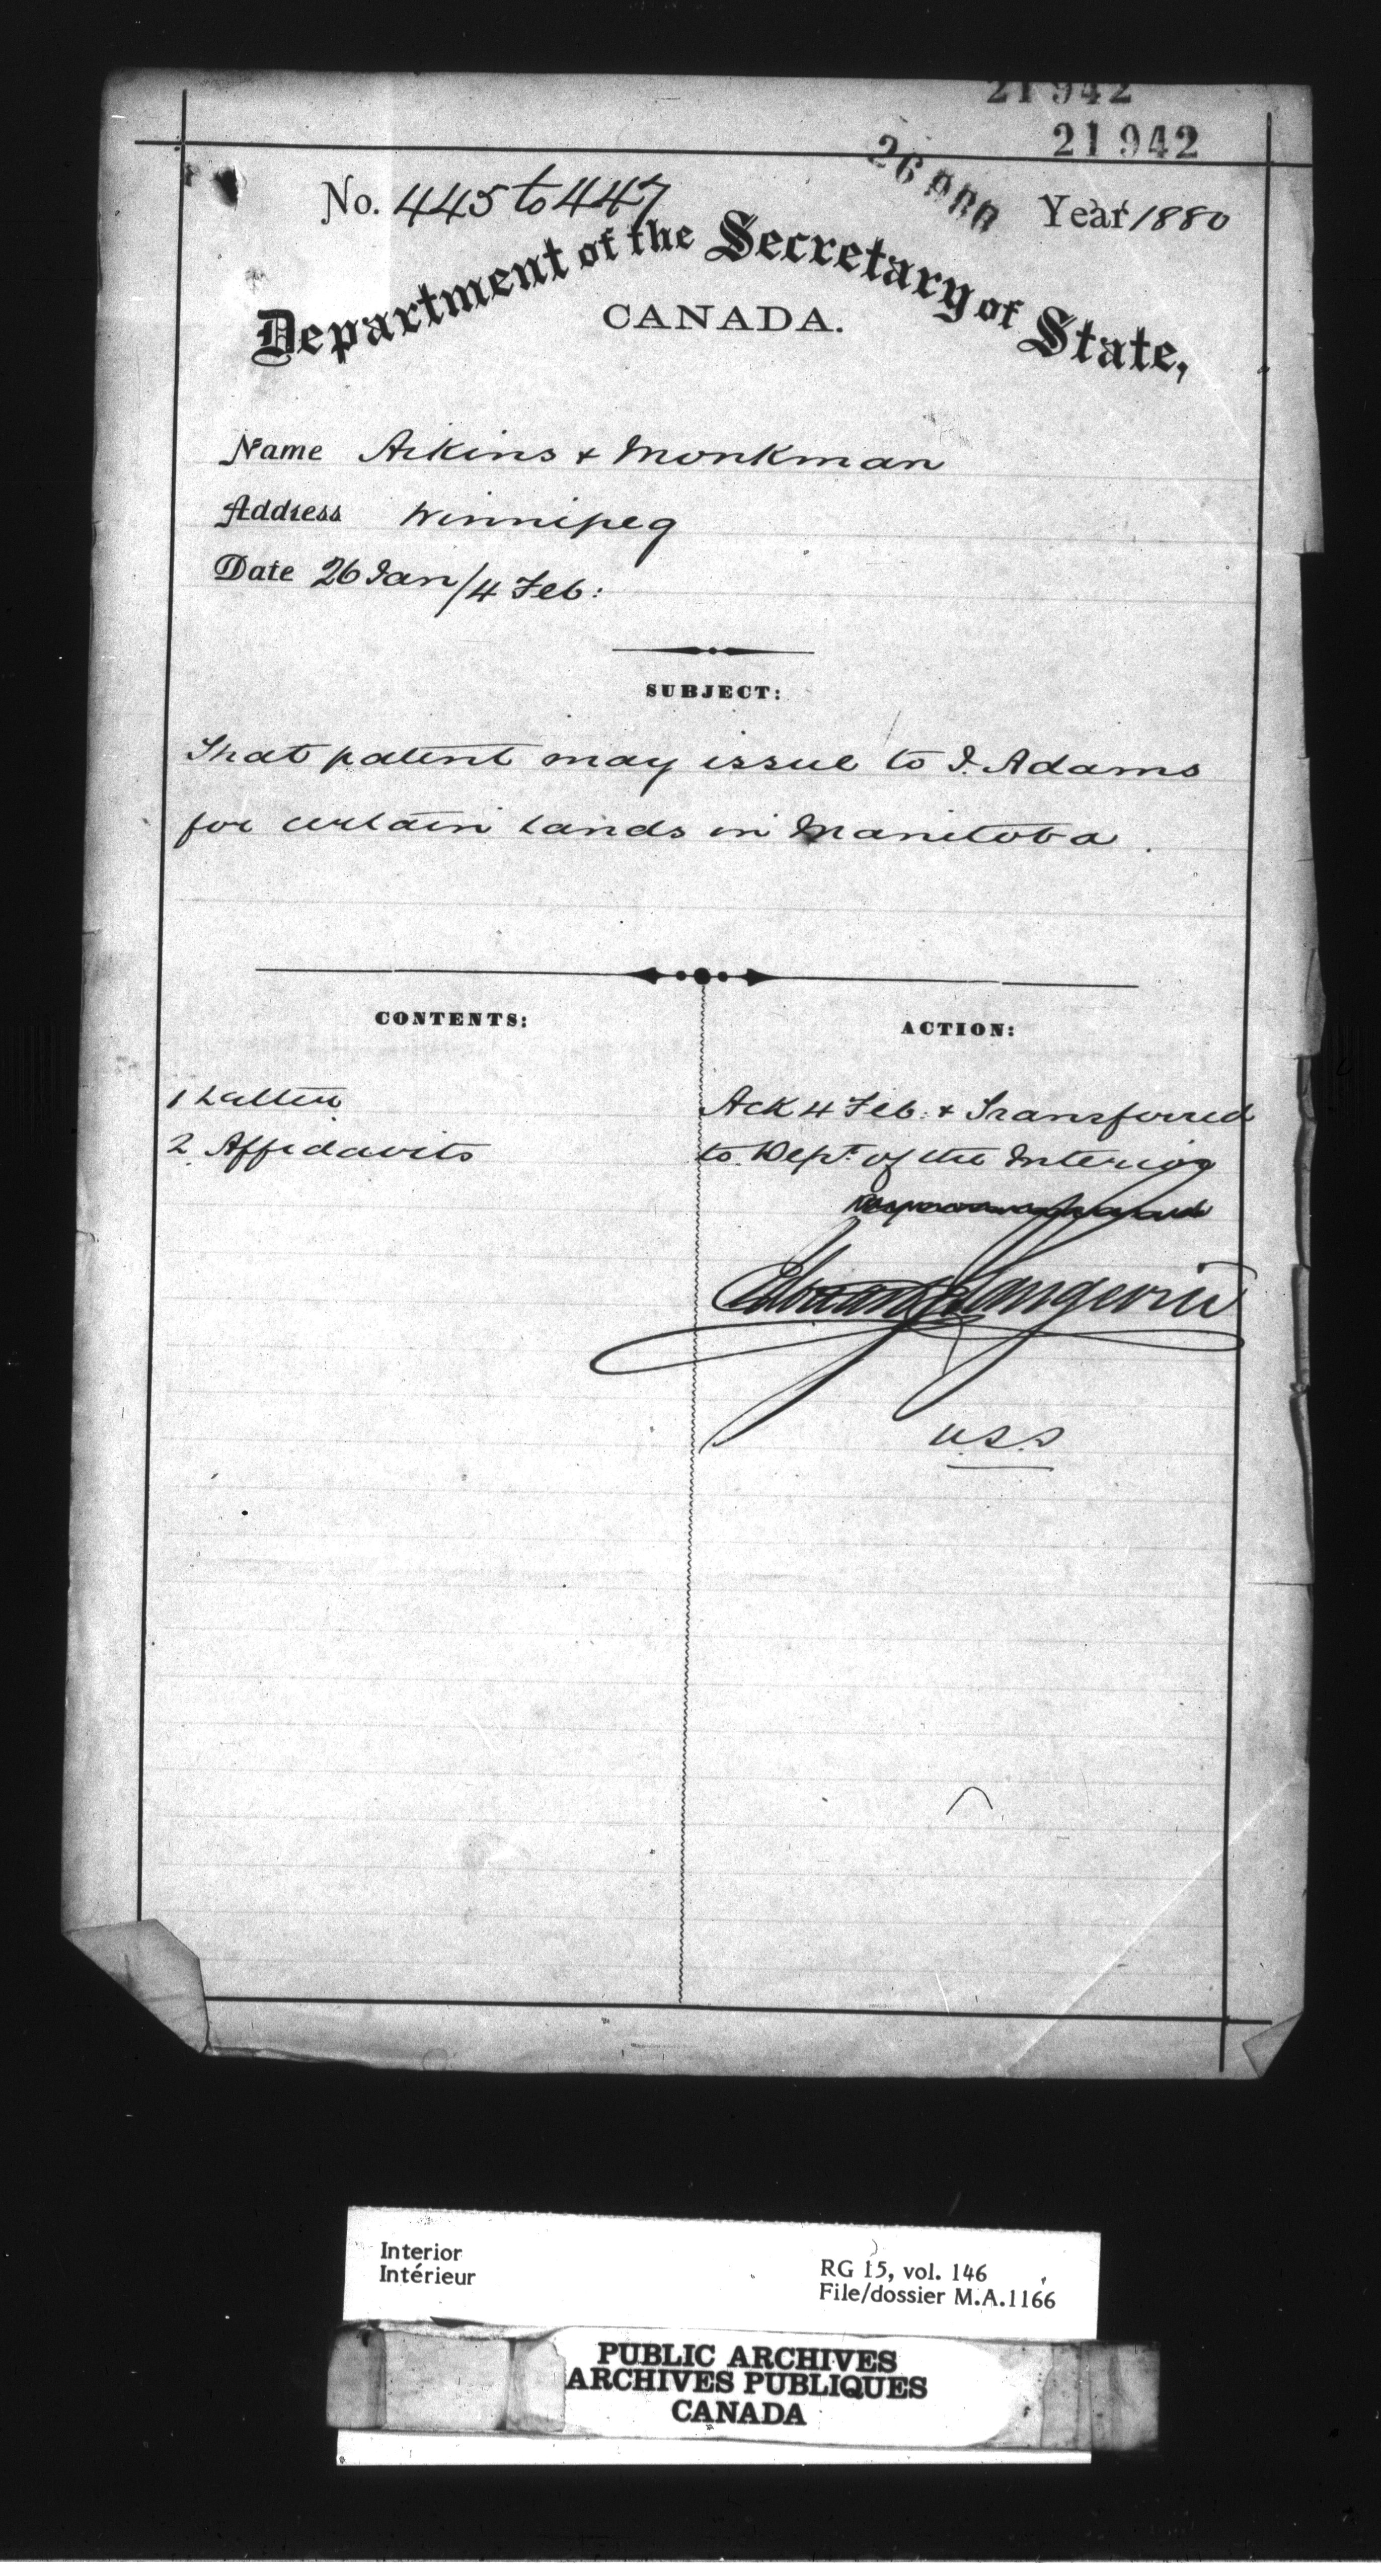 21 942
21 942
No. 445 to 447
Year 1880
Department of the Secretary of State,
CANADA.
Name Aikins & Monkman
Address Winnipeg
Date 26 Jan/4 Feb:
SUBJECT:
That patent may issue to J. Adams
for certain lands in Manitoba.
CONTENTS:
1 Letter
2 Affidavits
ACTION:
Ack 4 Feb: & Transferred
to Dept of the Interior
Edouard J Langevin
U.S.S
Interior
Intérieur
RG 15, vol. 146
File/dossier M.A.1166
PUBLIC ARCHIVES
ARCHIVES PUBLIQUES
CANADA